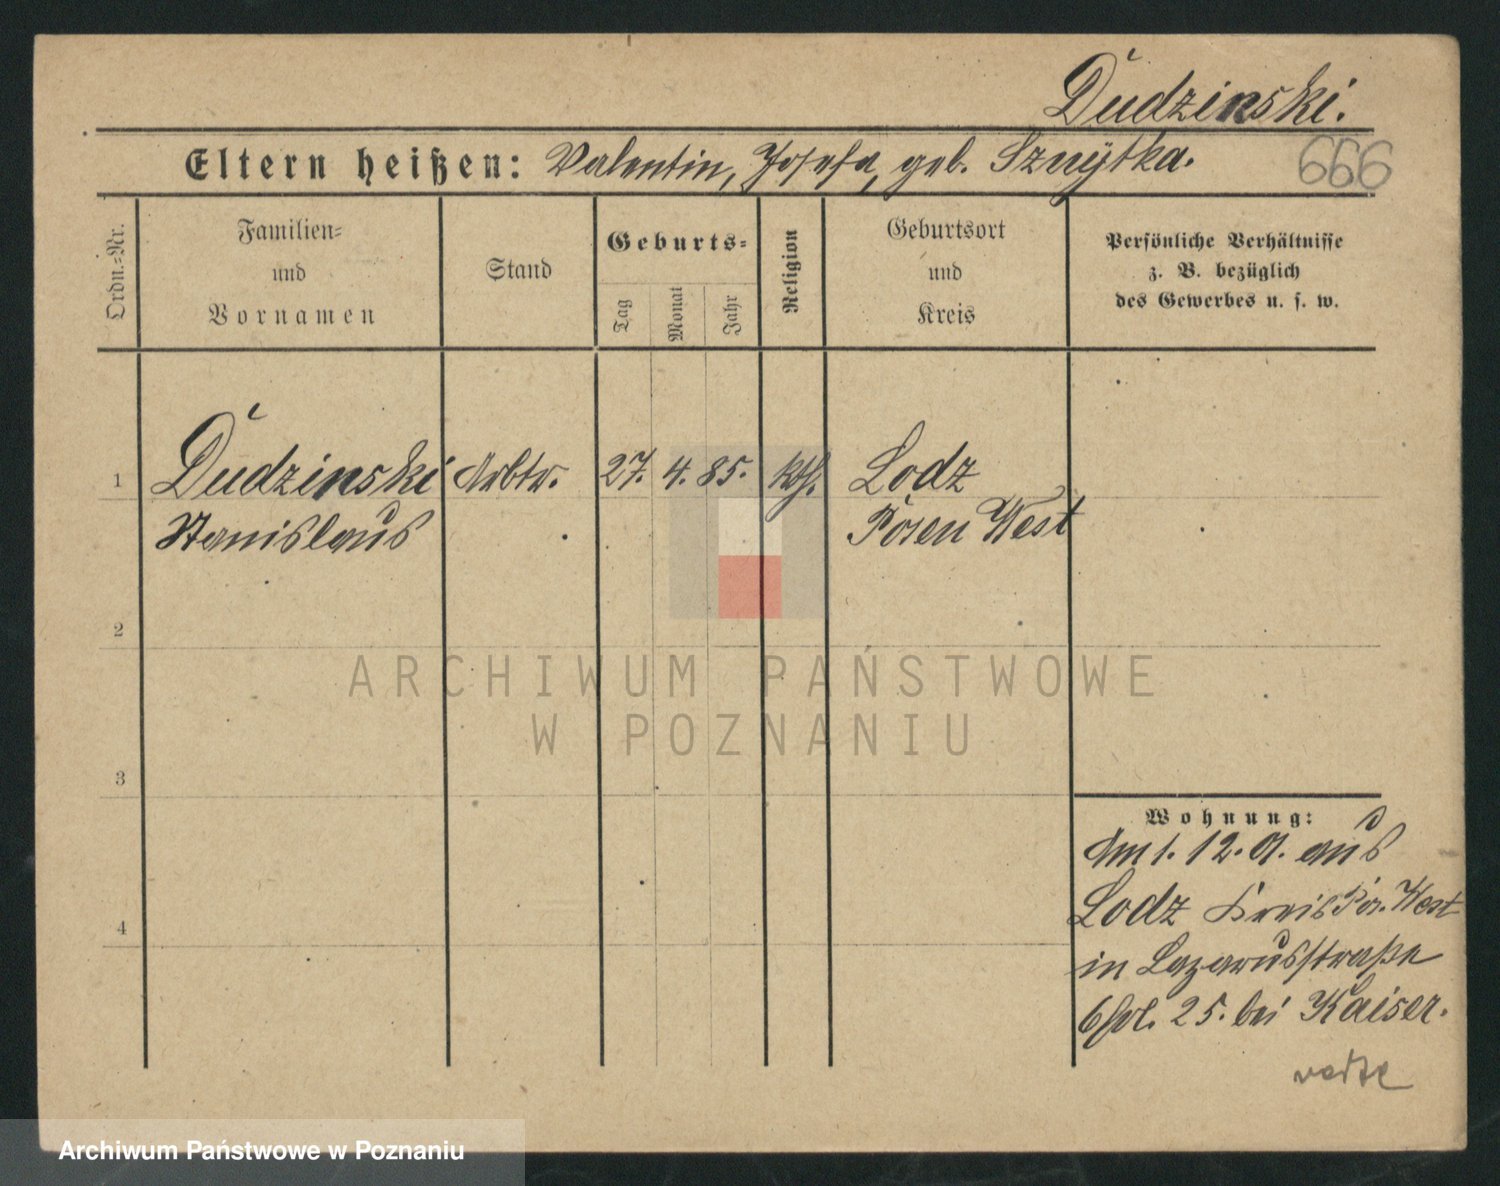 Dudzinski.
Eltern heißen: Valentin, Josefa, geb. Sznytka.
666
Ordn.-Nr.
Familien-
und
Vornamen
Stand
Geburts-
Tag
Monat
Jahr
Religion
Geburtsort
und
Kreis
Persönliche Verhältnisse
z. B. bezüglich
des Gewerbes u. s. w.
1
Dudzinski Arbtr. 27. 4. 85. kth. Lodz
Stanislaus Posen West
2
ARCHIWUM PAŃSTWOWE
W POZNANIU
3
Wohnung:
Am 1. 12. 01. aus
Lodz Kreis Pos. West
4
in Lazarusstraße
25. bei Kaiser.
Archiwum Państwowe w Poznaniu